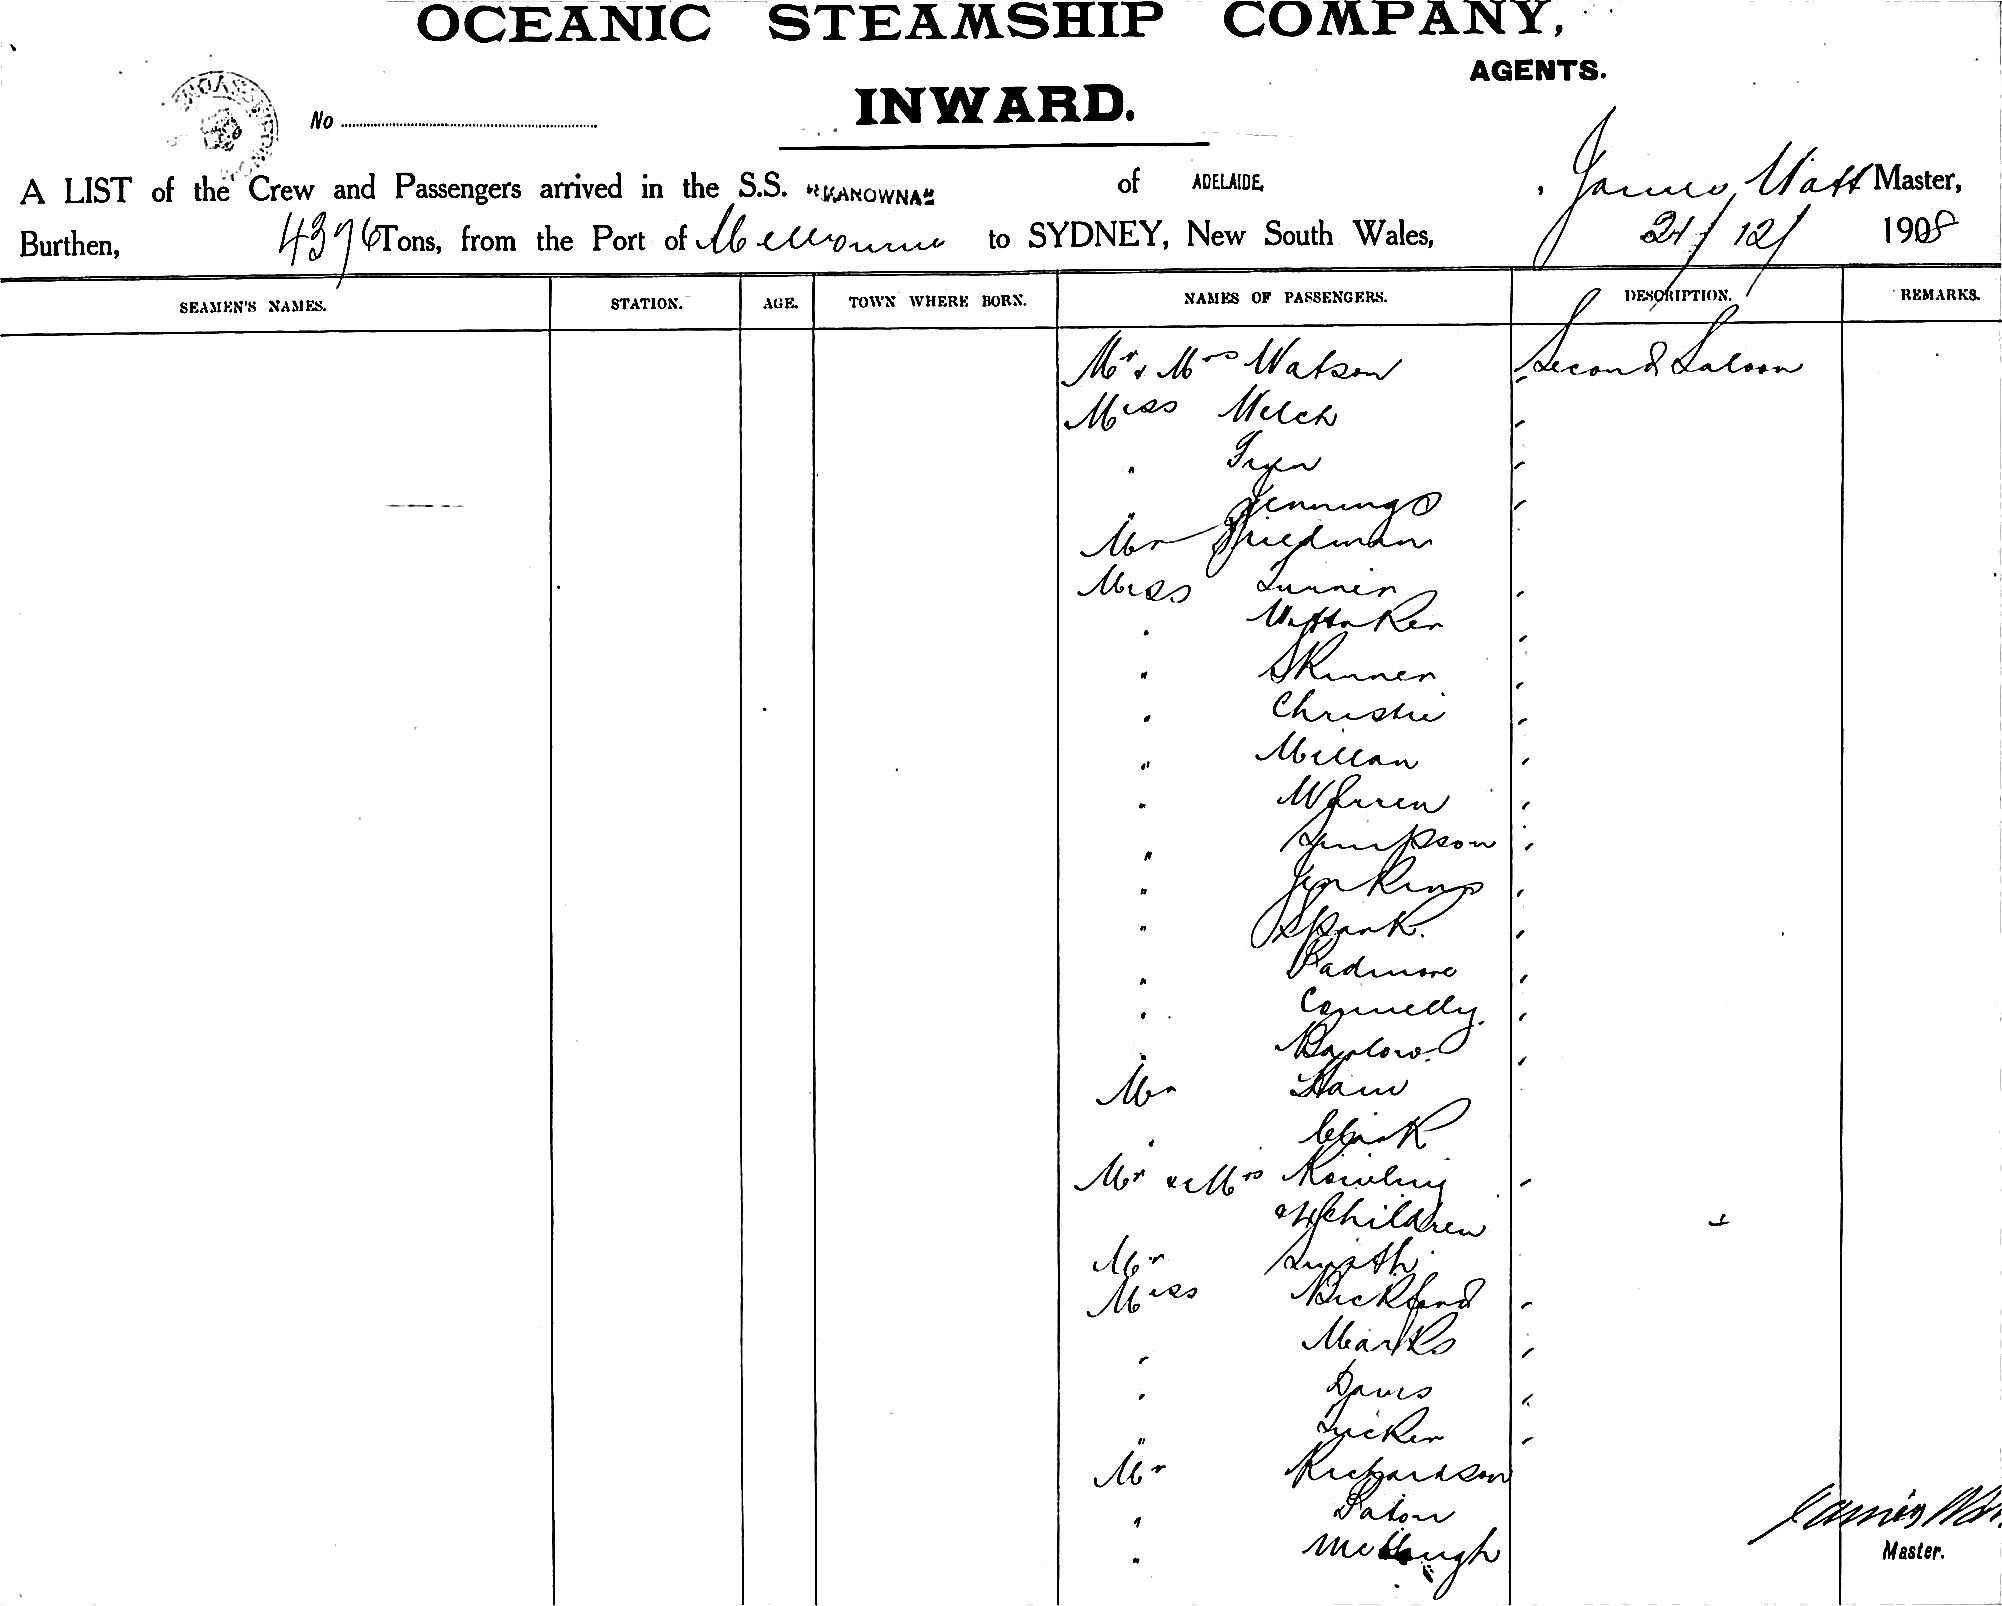 OCEANIC STEAMSHIP COMPANY,
AGENTS.
INWARD.
No
A LIST of the Crew and Passengers arrived in the S.S. "KANOWNA" of ADELAIDE, James Watt Master,
Burthen, 4396 Tons, from the Port of Melbourne to SYDNEY, New South Wales, 21/12/1908
SEAMEN'S NAMES. STATION. AGE. TOWN WHERE BORN. NAMES OF PASSENGERS. DESCRIPTION. REMARKS.
Mr & Mrs Watson Second Saloon
Miss Welch "
"
" Jennings "
Mr Friedman
Miss Turner "
" Wittaker "
" Skinner "
" Christie "
" Millan "
" Warren "
" Simpson "
" Jenkins "
" Spark. "
" Padmore "
" Connelly. "
" Barlow. "
Mr Ham
" Clark
Mr & Mrs Rowling "
& 4 Children
Mr Smith
Miss Bickford "
" Marks "
" Davis "
" Tucker "
Mr Richardson
" Paton
"
James Watt
Master.